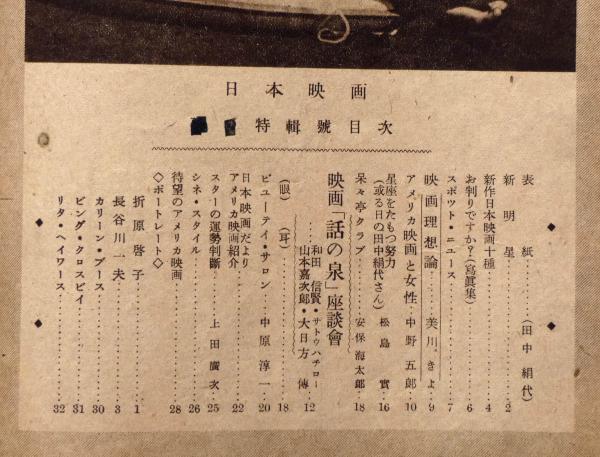 日本映画
特輯號目次
表紙………(田中絹代)
新明星………2
新作日本映画十種………4
お判りですか?(寫眞集)………6
スポツト・ニュース………7
映画理想論………美川きよ…9
アメリカ映画と女性…中野五郎…10
星座をたもつ努力
(或る日の田中絹代さん)………松島實…16
呆々亭クラブ………安保海太郎…18
映画「話の泉」座談會
和田信賢・サトウハチロー
山本嘉次郎・大日方傳…12
(眼)(耳)………18
ビューテイ・サロン………中原淳一…20
日本映画だより
アメリカ映画紹介………22
スターの運勢判斷………上田廣次…25
シネ・スタイル………26
待望のアメリカ映画………28
◇ポートレート◇
折原啓子………1
長谷川一夫………3
カリーン・ブース………30
ビング・クロスビイ………31
リタ・ヘイワース………32